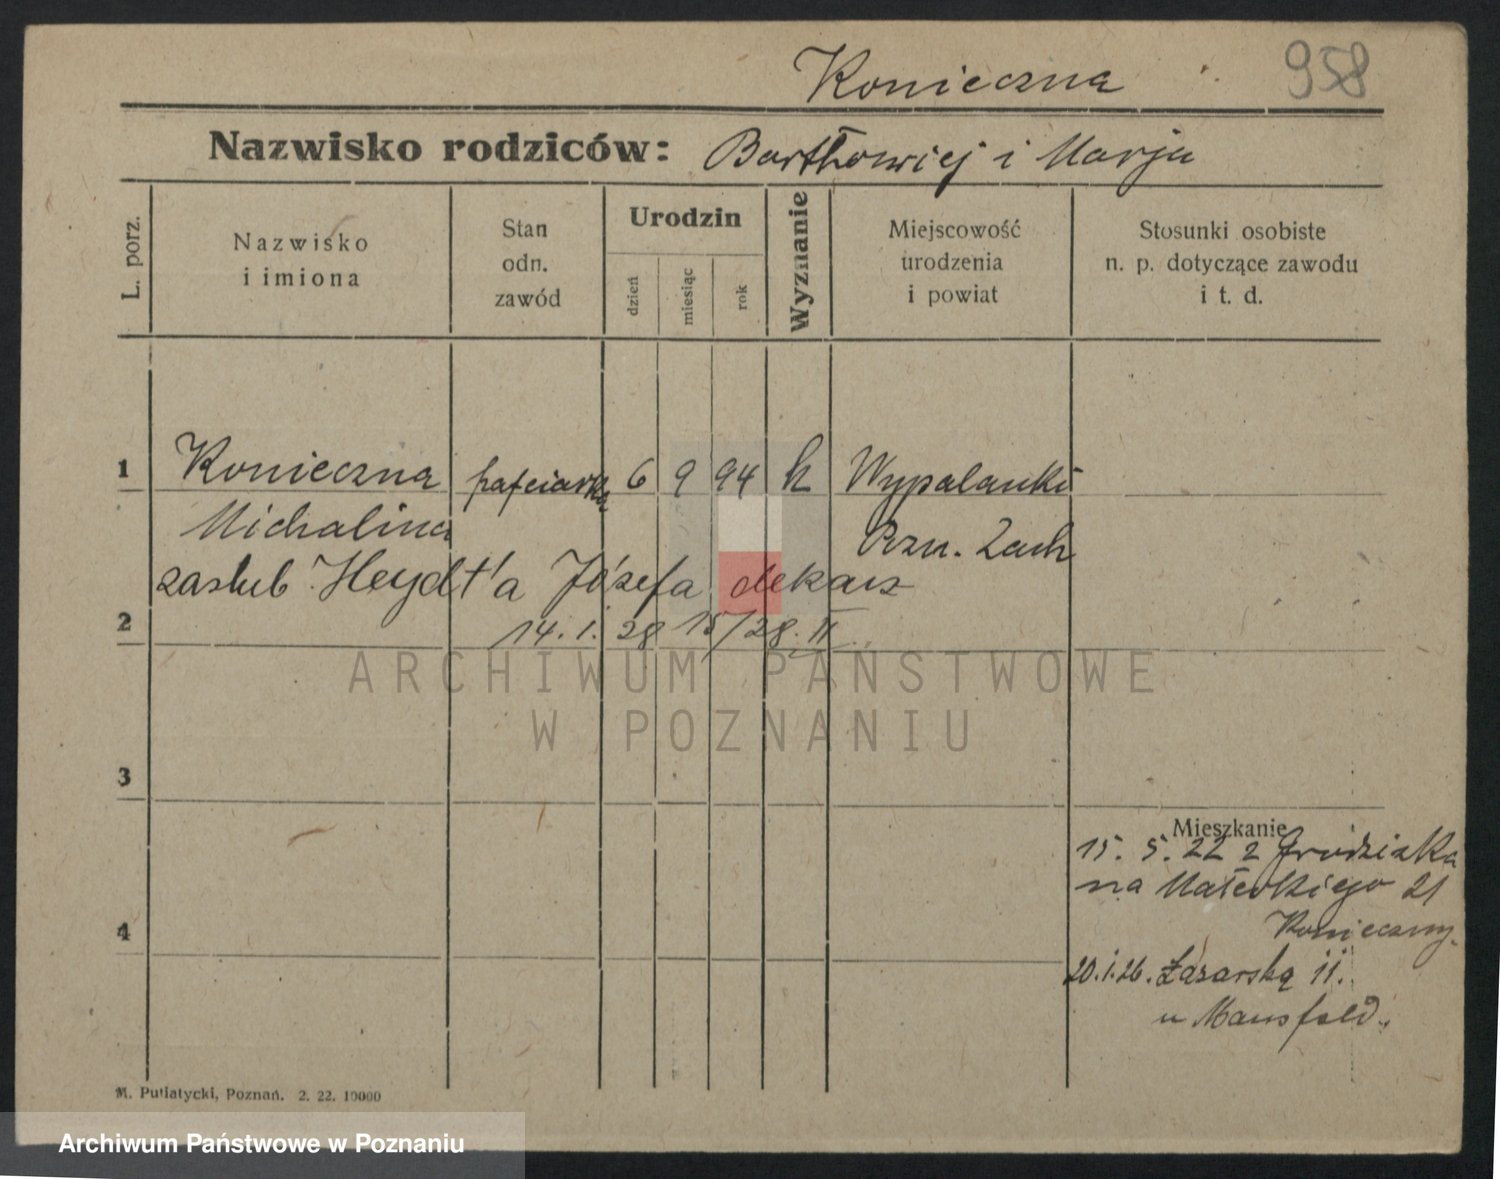 Konieczna
958
Nazwisko rodziców: Bartłomiej i Marja
L. porz.
Nazwisko
i imiona
Stan
odn.
zawód
Urodzin
dzień
miesiąc
rok
Wyznanie
Miejscowość
urodzenia
i powiat
Stosunki osobiste
n. p. dotyczące zawodu
i t. d.
1 Konieczna hafciarka 6 9 94 k Wypalanki
Michalina Pzn. Zach
zaslub Heydt'a Józefa dekarz
2 14. 1. 28 15/28. II
ARCHIWUM PAŃSTWOWE
W POZNANIU
3
Mieszkanie
15. 5. 22 z Grodziska
na Małeckiego 21
4 Konieczny
20.1.26. Łazarską 11.
u Mansfeld.
M. Putiatycki, Poznań. 2. 22. 10000
Archiwum Państwowe w Poznaniu